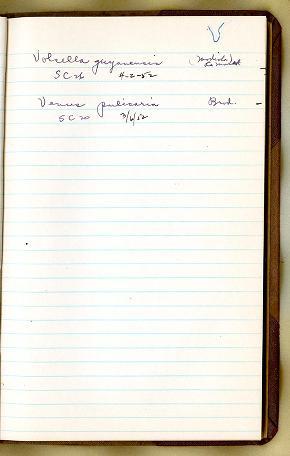 V
Volsella guyanensis
SC26 4-2-52
Venus pulicaria Brod.
SC20 3/6/52